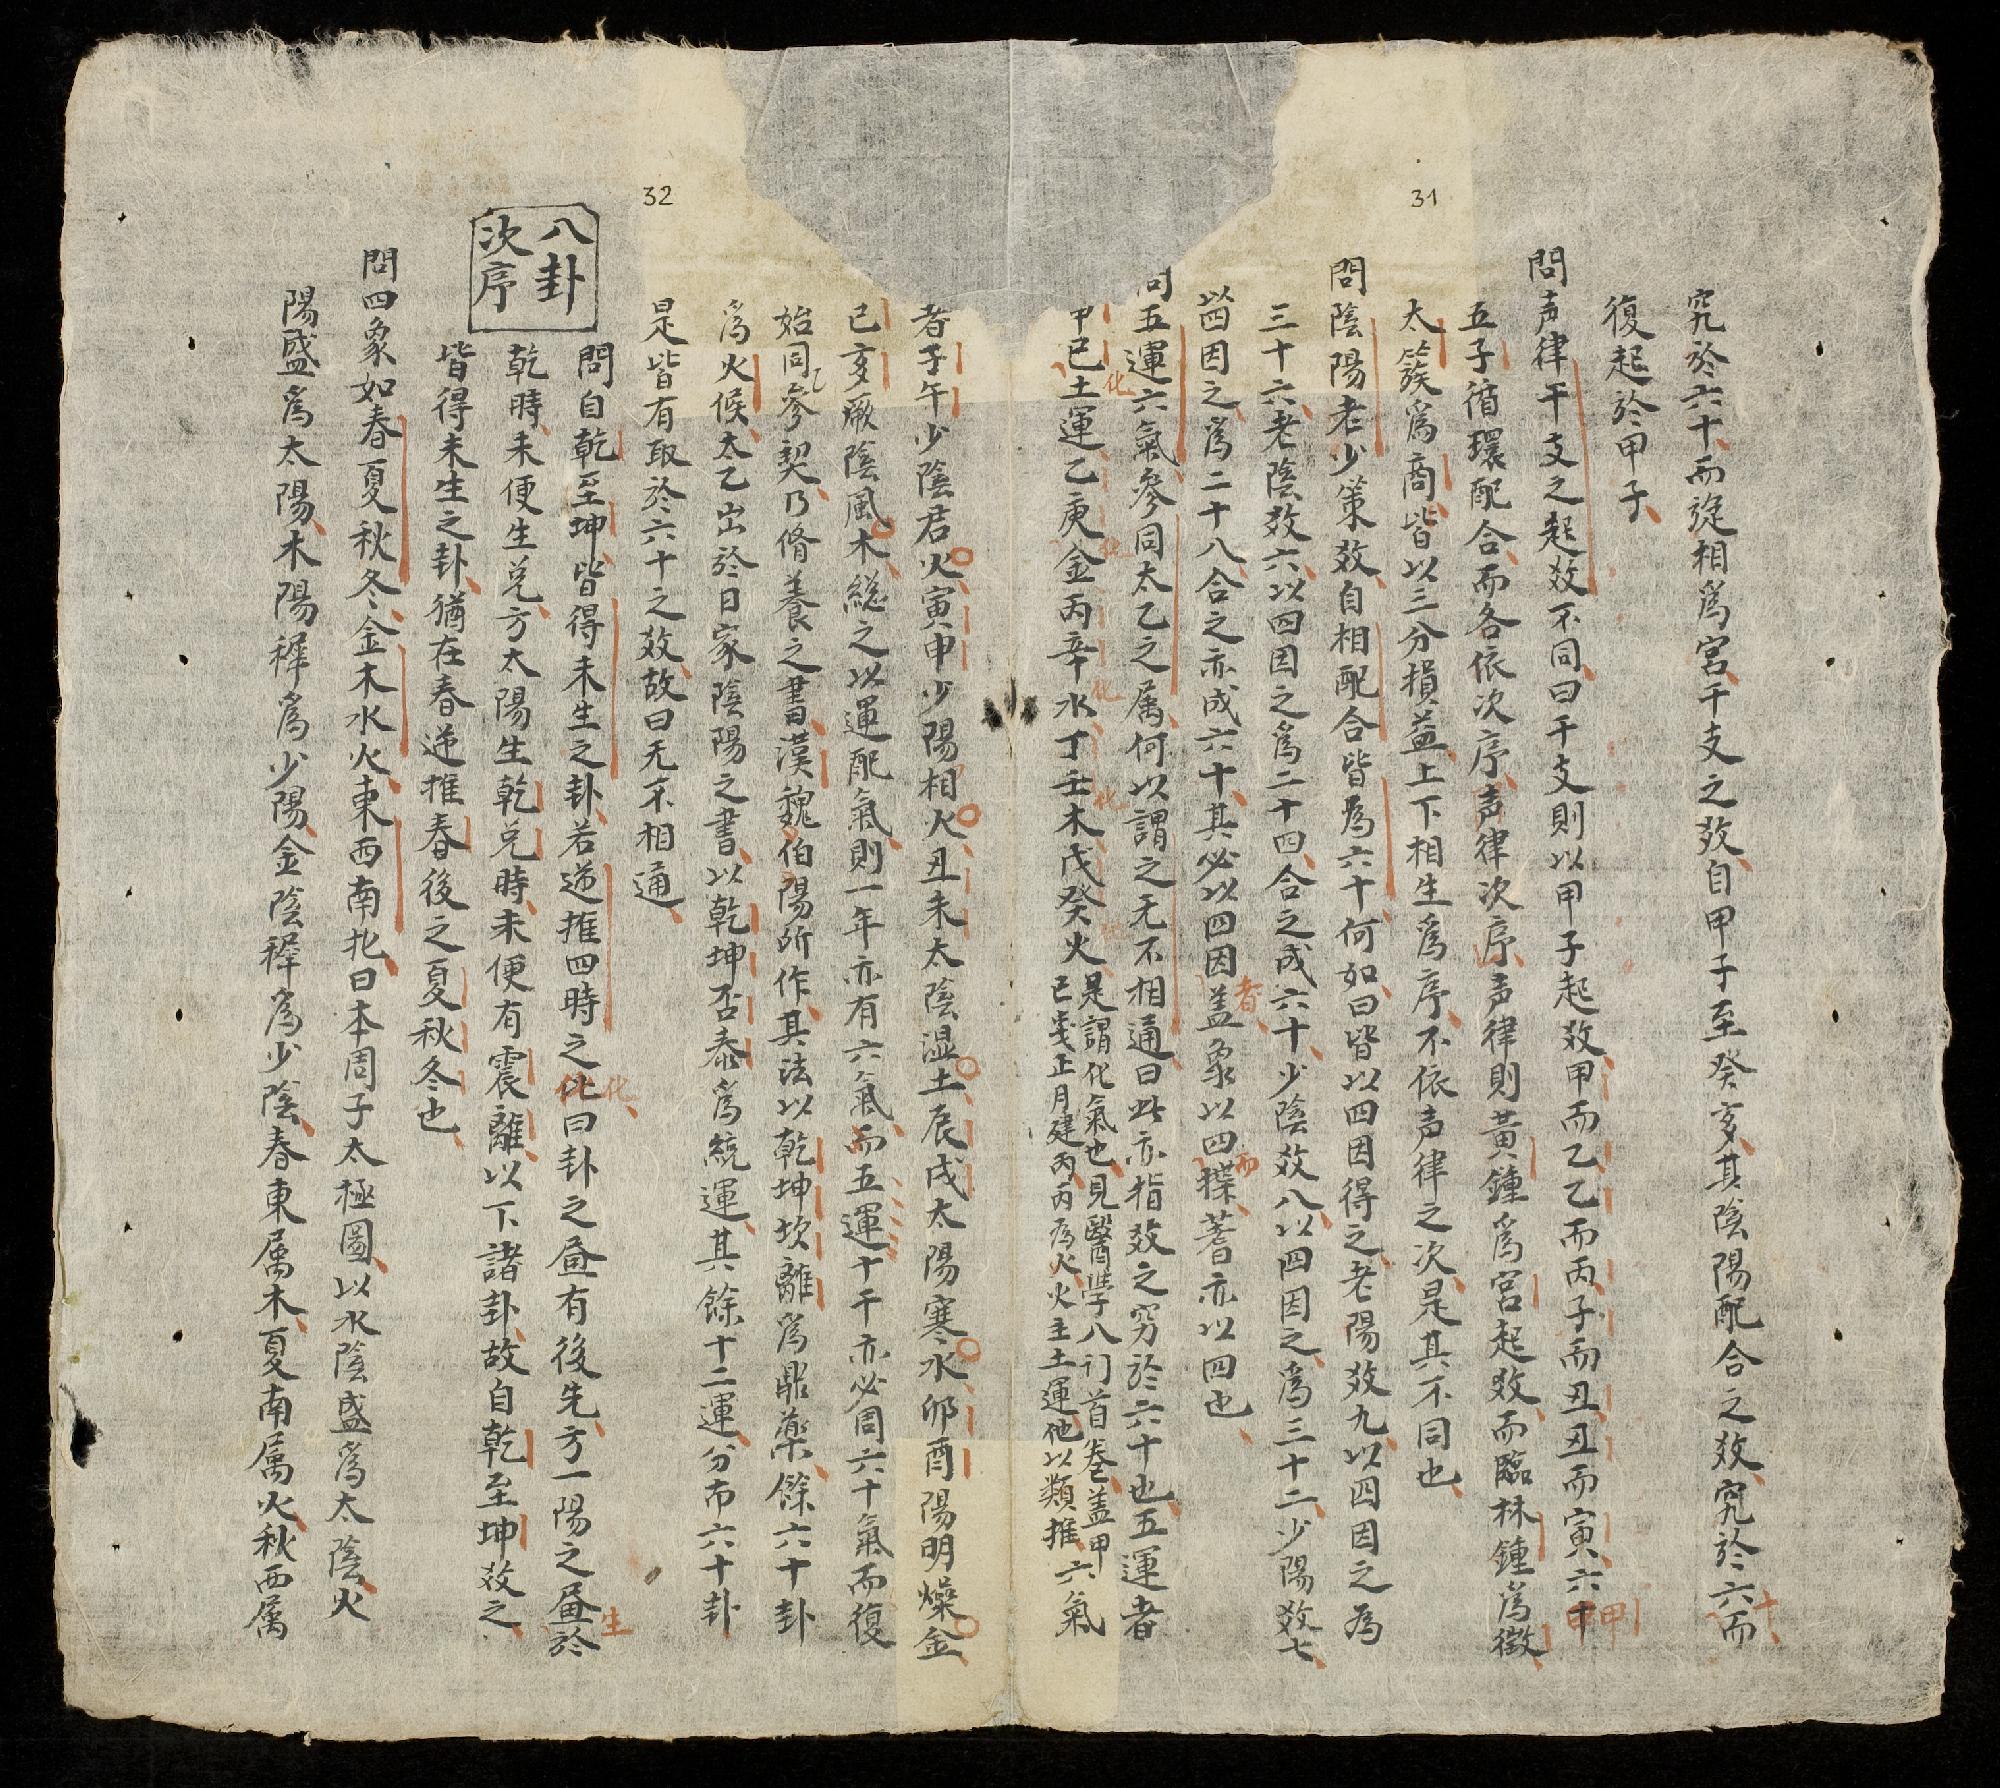 31
究於六十而旋相為宮干支之敉自甲子至癸亥其陰陽配合之敉究於六十而
復起於甲子
問声律干支之起敉不同曰干支則以甲子起敉甲而乙乙而丙子而丑丑而寅六十甲
五子循環配合而各依次序声律次序声律則黃鍾為宮起敉而臨林鍾為徵
太簇為商皆以三分損益上下相生為序不依声律之次是其不同也
問陰陽老少策敉自相配合皆為六十何如曰皆以四因得之老陽敉九以四因之為
三十六老陰敉六以四因之為二十四合之成六十少陰敉八以四因之為三十二少陽敉七
以四因之為二十八合之亦成六十其必以四因者盖象以四而揲蓍亦以四也
問五運六氣參同太乙之属何以謂之无不相通曰此亦指敉之穷於六十也五運者
甲己化土運乙庚化金丙辛化水丁壬化木戊癸化火是謂化氣也見醫學八门首卷盖甲
己歲正月建丙丙為火火主土運他以類推六氣
者子午少陰君火寅申少陽相火丑未太陰湿土辰戌太陽寒水卯酉陽明燥金
巳亥厥陰風木総之以運配氣則一年亦有六氣而五運十干亦必周六十氣而復
始同參契乃脩養之書漢魏伯陽所作其法以乾坤坎離為鼎藥餘六十卦
為火候太乙出於日家陰陽之書以乾坤否泰為統運其餘十二運分布六十卦
是皆有取於六十之敉故曰无不相通
32
八卦次序
問自乾至坤皆得未生之卦若逆推四時之比化曰卦之昼有後先方一陽之昼於
乾時未便生兑方太陽生乾兑時未便有震離以下諸卦故自乾至坤敉之生
皆得未生之卦猶在春逆推春後之夏秋冬也
問四象如春夏秋冬金木水火東西南北曰本周子太極圖以水陰盛為太陰火
陽盛為太陽木陽穉為少陽金陰穉為少陰春東属木夏南属火秋西属